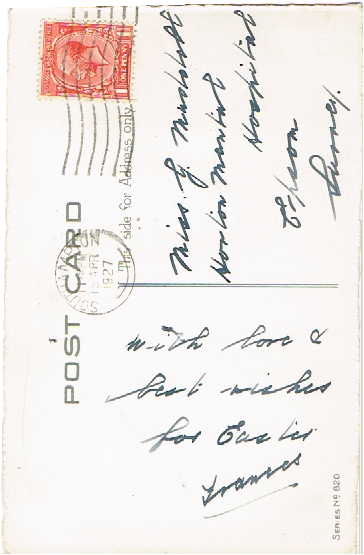 POST CARD
This side for Address only
ONE PENNY
SOUTHAMPTON
APR
1927
Miss. G. Marshall
Horton Mental
Hospital
Epsom
Surrey.
With love &
best wishes
for Easter
Frances
SERIES No 820